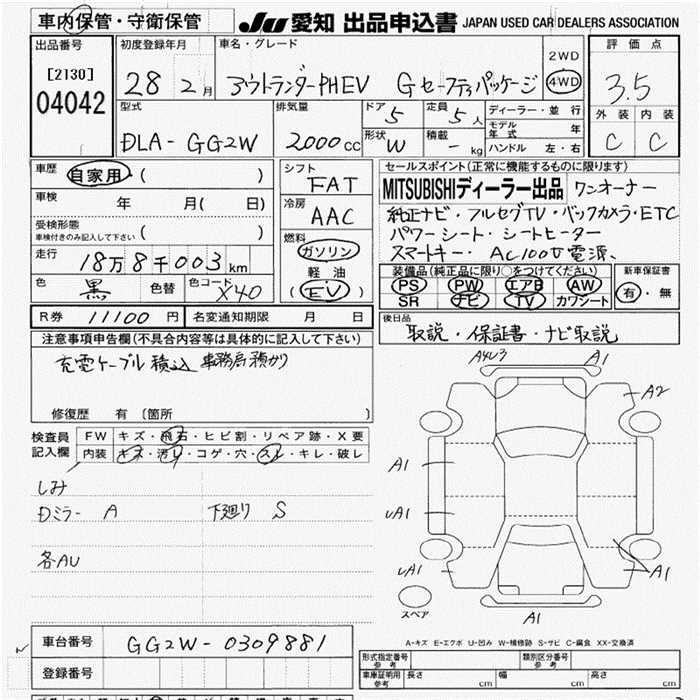 車内保管・守衛保管
JU 愛知 出品申込書 JAPAN USED CAR DEALERS ASSOCIATION
出品番号
[2130]
04042
初度登録年月
28 2月
車名・グレード
アウトランダーPHEV Gセーフティパッケージ
2WD
4WD
評価点
3.5
外装 内装
C C
型式
DLA-GG2W
排気量
2000cc
ドア 5
形状 W
定員 5人
積載 - kg
ディーラー・並行
モデル年式 年
ハンドル 左・右
車歴 自家用 ( )
車検 年 月( 日)
受検形態
車検付きのみ記入して下さい ( )
走行 18万8千003km
色 黒 色替 色コード X40
シフト
FAT
冷房
AAC
燃料
ガソリン
軽油
(EV)
セールスポイント(正常に機能するものに限ります)
MITSUBISHIディーラー出品 ワンオーナー
純正ナビ・フルセグTV・バックカメラ・ETC
パワーシート・シートヒーター
スマートキー・AC100V電源、
装備品(純正品に限り○をつけてください)
PS PW エアB AW
SR ナビ TV カワシート
新車保証書
有・無
R券 11100円 名変通知期限 月 日
後日品
取説・保証書・ナビ取説
注意事項申告欄(不具合内容等は具体的に記入して下さい)
充電ケーブル積込 事務局預かり
修復歴 有 〔箇所 〕
検査員記入欄
FW キズ・飛石・ヒビ割・リペア跡・X要
内装 キズ・汚れ・コゲ・穴・スレ・キレ・破レ
しみ
Dミラー A 下廻り S
各AU
A4U3 A1
A2
A1
UA1
UA1
A1
スペア
A1
A-キズ E-エクボ U-凹み W-補修跡 S-サビ C-腐食 XX-交換済
車台番号 GG2W-0309881
登録番号
形式指定番号 参考 類別区分番号 参考
車庫証明用 参考 長さ cm 幅 cm 高さ cm